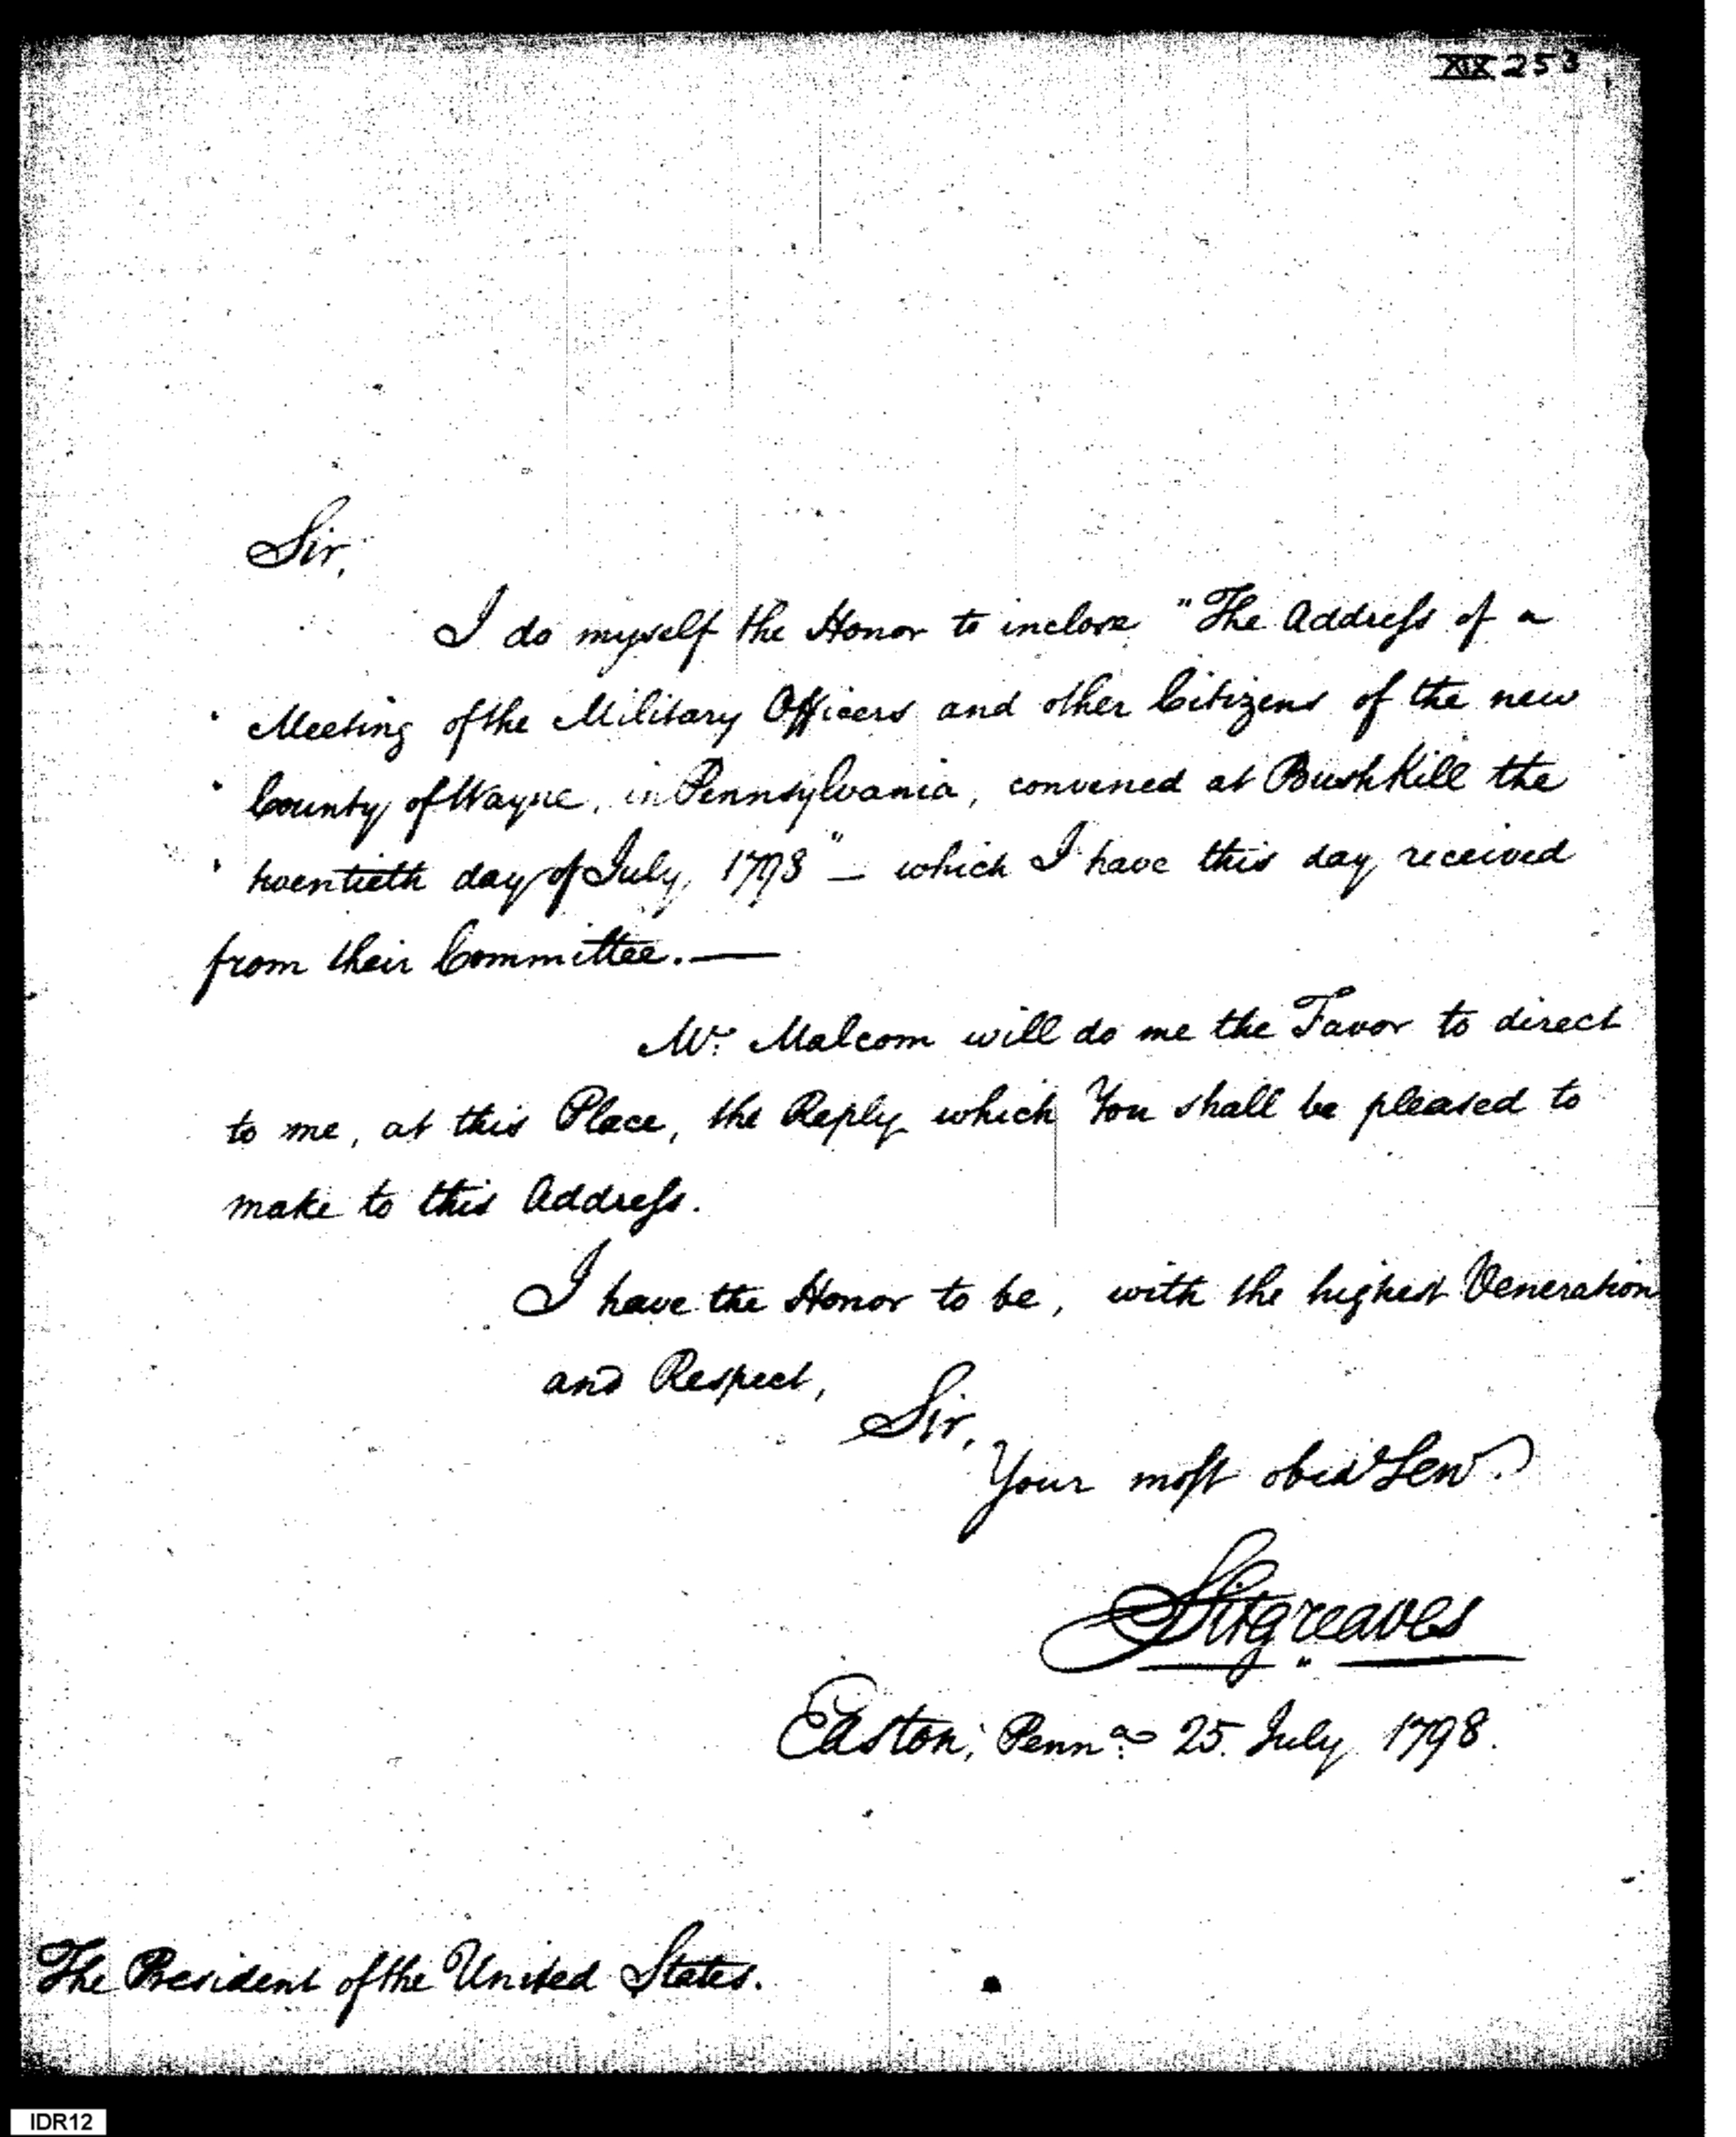 XIX 253
Sir,
I do myself the Honor to inclose "The Address of a
" Meeting of the Military Officers and other Citizens of the new
" County of Wayne, in Pennsylvania, convened at Bushkill the
" twentieth day of July, 1798" — which I have this day received
from their Committee. —
Mr. Malcom will do me the Favor to direct
to me, at this Place, the Reply which You shall be pleased to
make to this Address.
I have the Honor to be, with the highest Veneration
and Respect,
Sir,
Your most obedt Serv.
Sitgreaves
Easton, Penna. 25. July 1798.
The President of the United States.
IDR12